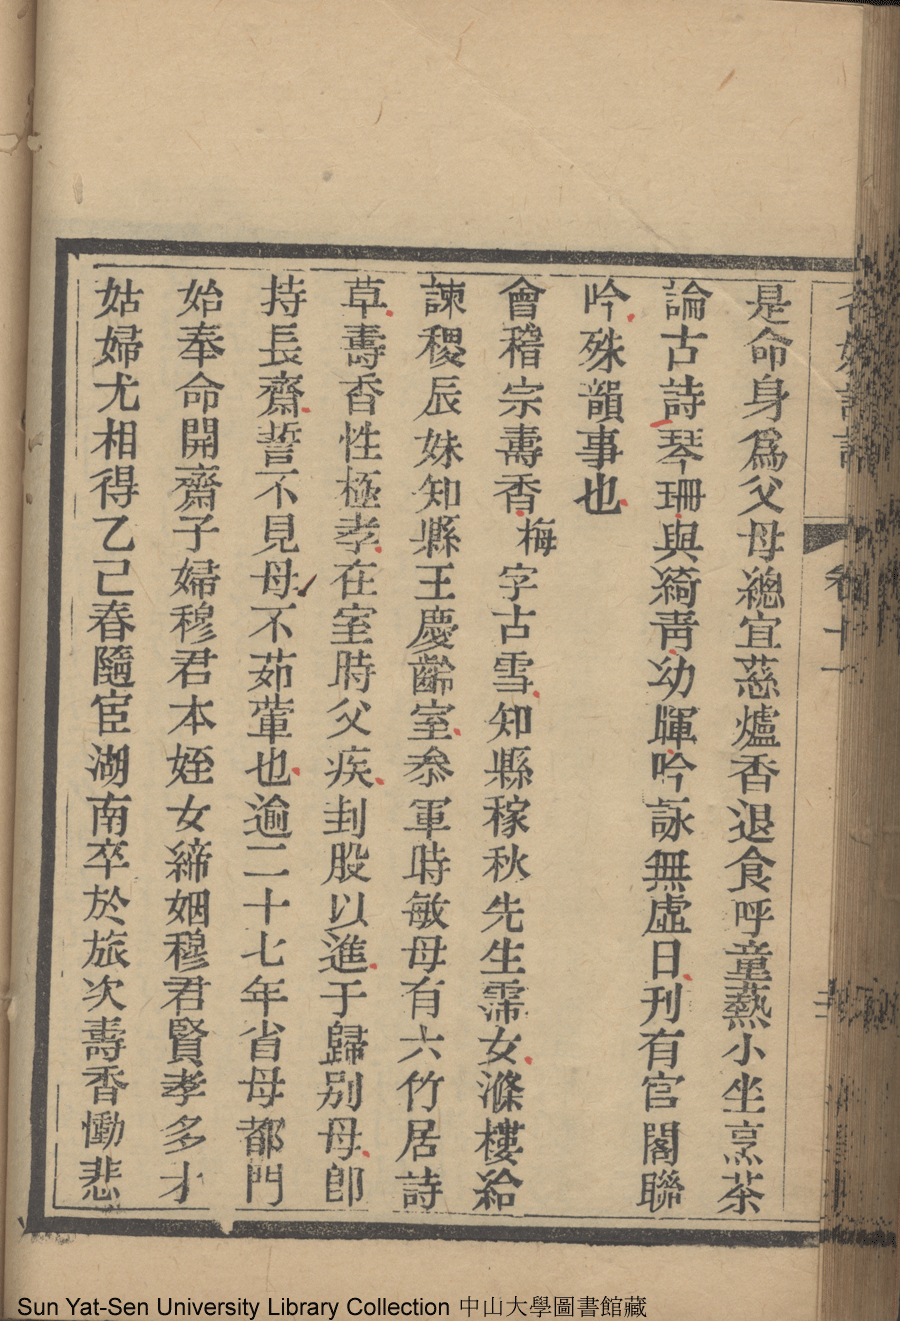 名媛詩話
卷十一
是命身爲父母總宜慈爐香退食呼童爇小坐烹茶
論古詩琴珊與綺靑幼暉吟詠無虛日刋有官閣聯
吟殊韻事也
會稽宗壽香梅字古雪知縣稼秋先生霈女滌樓給
諫稷辰妹知縣王慶齡室叅軍時敏母有六竹居詩
草壽香性極孝在室時父疾刲股以進于歸別母卽
持長齋誓不見母不茹葷也逾二十七年省母都門
始奉命開齋子婦穆君本姪女締姻穆君賢孝多才
姑婦尤相得乙巳春隨宦湖南卒於旅次壽香慟悲
Sun Yat-Sen University Library Collection 中山大學圖書館藏